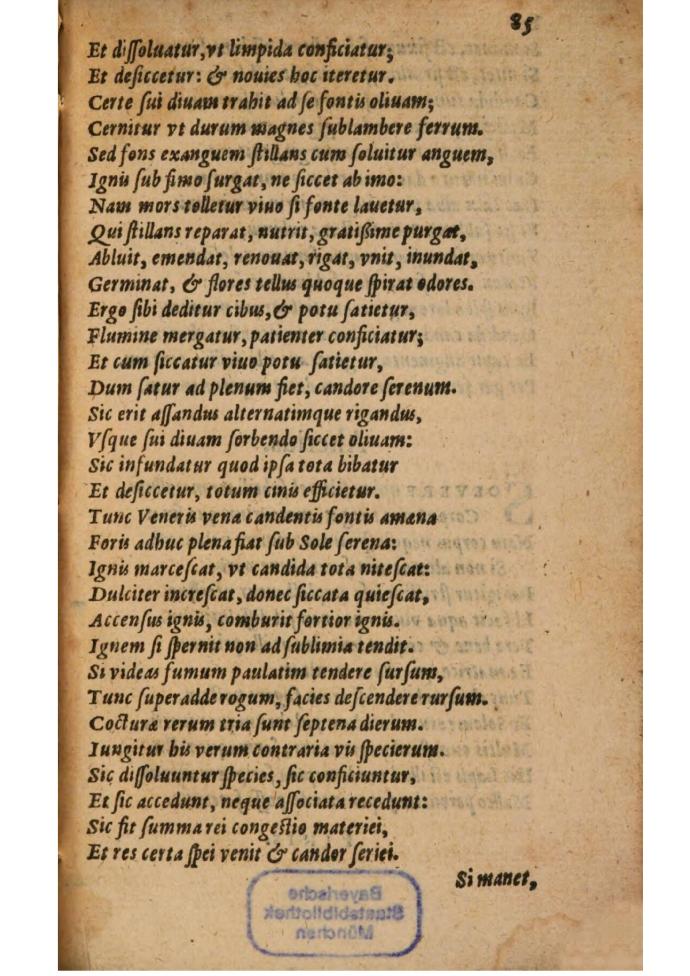 85
Et diſſoluatur,vt limpida conficiatur;
Et deſiccetur: & nouies hoc iteretur.
Certe ſui diuam trahit ad ſe fontis oliuam;
Cernitur vt durum magnes ſublambere ferrum.
Sed fons exanguem ſtillans cum ſoluitur anguem,
Ignis ſub fimo ſurgat, ne ſiccet ab imo:
Nam mors tolletur viuo ſi fonte lauetur,
Qui ſtillans reparat, nutrit, gratiſſime purgat,
Abluit, emendat, renouat, rigat, vnit, inundat,
Germinat, & flores tellus quoque ſpirat odores.
Ergo ſibi deditur cibus,& potu ſatietur,
Flumine mergatur, patienter conficiatur;
Et cum ſiccatur viuo potu ſatietur,
Dum ſatur ad plenum fiet, candore ſerenum.
Sic erit aſſandus alternatimque rigandus,
Vſque ſui diuam ſorbendo ſiccet oliuam:
Sic infundatur quod ipſa tota bibatur
Et deſiccetur, totum cinis efficietur.
Tunc Veneris vena candentis fontis amœna
Foris adhuc plena fiat ſub Sole ſerena:
Ignis marceſcat, vt candida tota niteſcat:
Dulciter increſcat, donec ſiccata quieſcat,
Accenſus ignis, comburit fortior ignis.
Ignem ſi ſpernit non ad ſublimia tendit.
Si videas fumum paulatim tendere ſurſum,
Tunc ſuperadde rogum, facies deſcendere rurſum.
Cocturæ rerum tria ſunt ſeptena dierum.
Iungitur his verum contraria vis ſpecierum.
Sic diſſoluuntur ſpecies, ſic conficiuntur,
Et ſic accedunt, neque aſſociata recedunt:
Sic fit ſumma rei congeſtio materiei,
Et res certa ſpei venit & candor ſeriei.
Si manet,
Bayerische
Staatsbibliothek
München